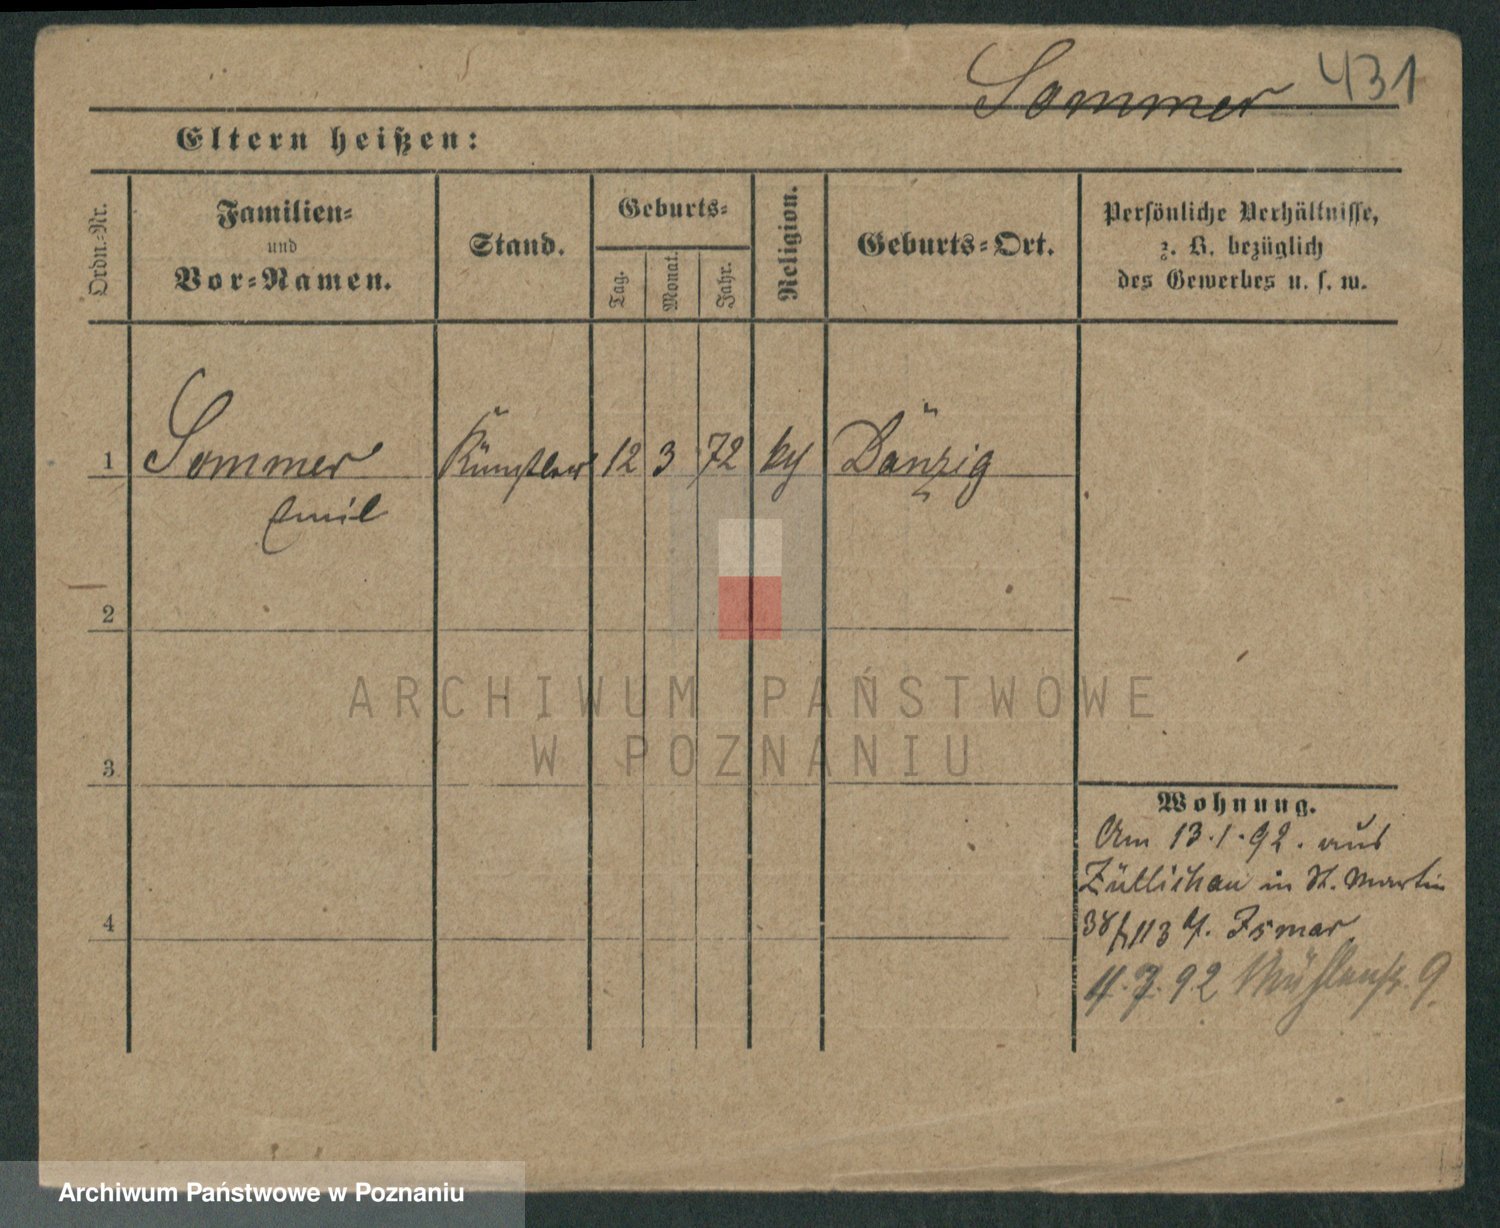 Sommer 431
Eltern heißen:
Ordn.-Nr.
Familien-
und
Vor-Namen.
Stand.
Geburts-
Tag.
Monat.
Jahr.
Religion.
Geburts-Ort.
Persönliche Verhältnisse,
z. B. bezüglich
des Gewerbes u. s. w.
1 Sommer Künstler 12 3 72 Danzig
Emil
2
3
4
Wohnung.
Am 13.1.92. aus
Züllichau in St. Martin
Ismar
92 Mühlenstr. 9.
ARCHIWUM PAŃSTWOWE
W POZNANIU
Archiwum Państwowe w Poznaniu